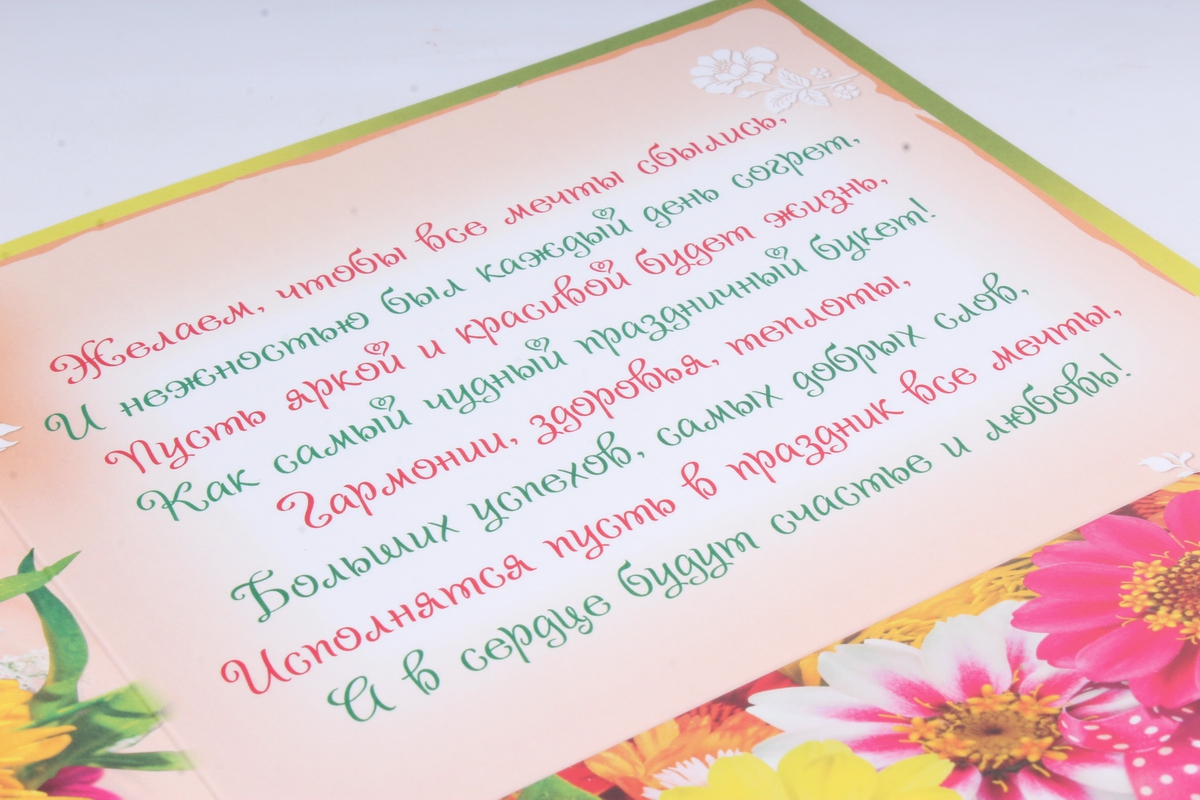 Желаем, чтобы все мечты сбылись,
И нежностью был каждый день согрет,
Пусть яркой и красивой будет жизнь,
Как самый чудный праздничный букет!
Гармонии, здоровья, теплоты,
Больших успехов, самых добрых слов,
Исполнятся пусть в праздник все мечты,
А в сердце будут счастье и любовь!